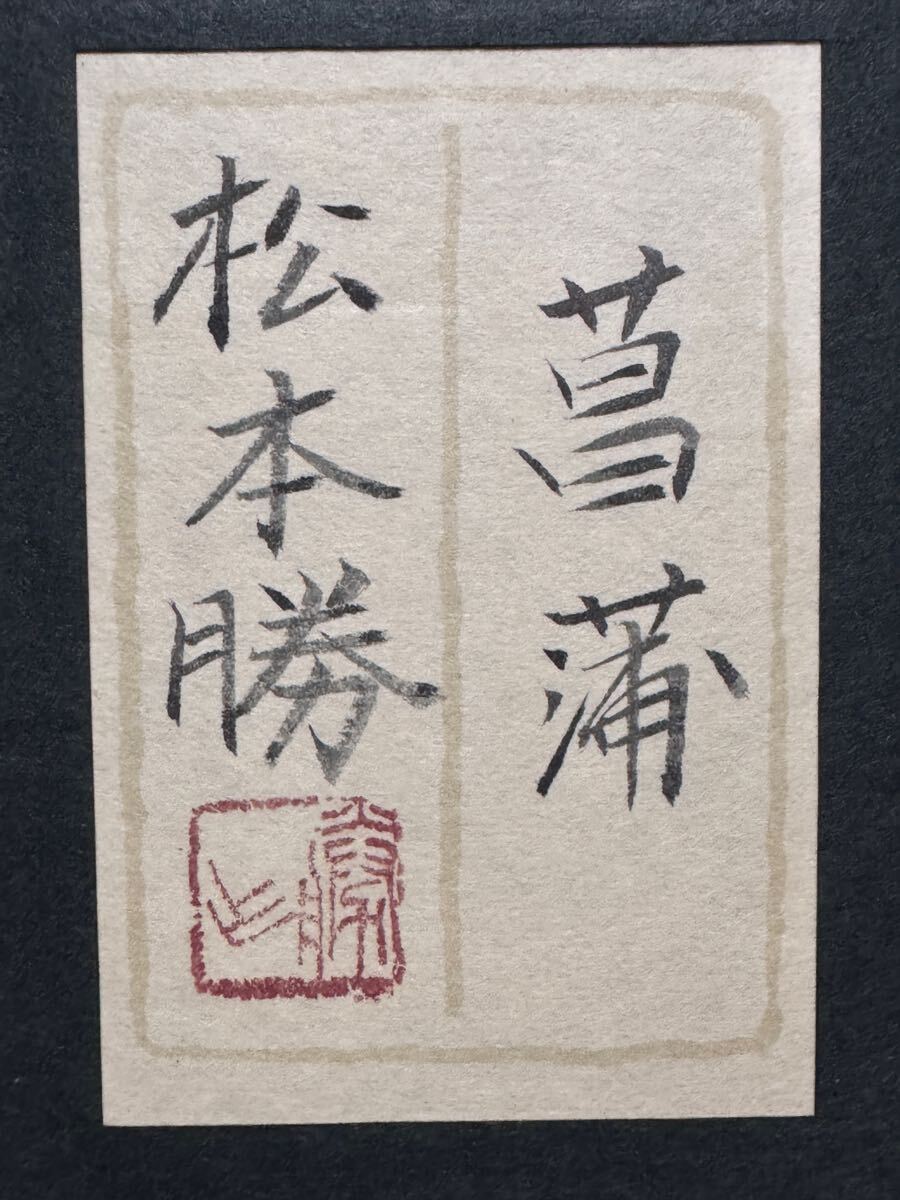 菖蒲
松本勝